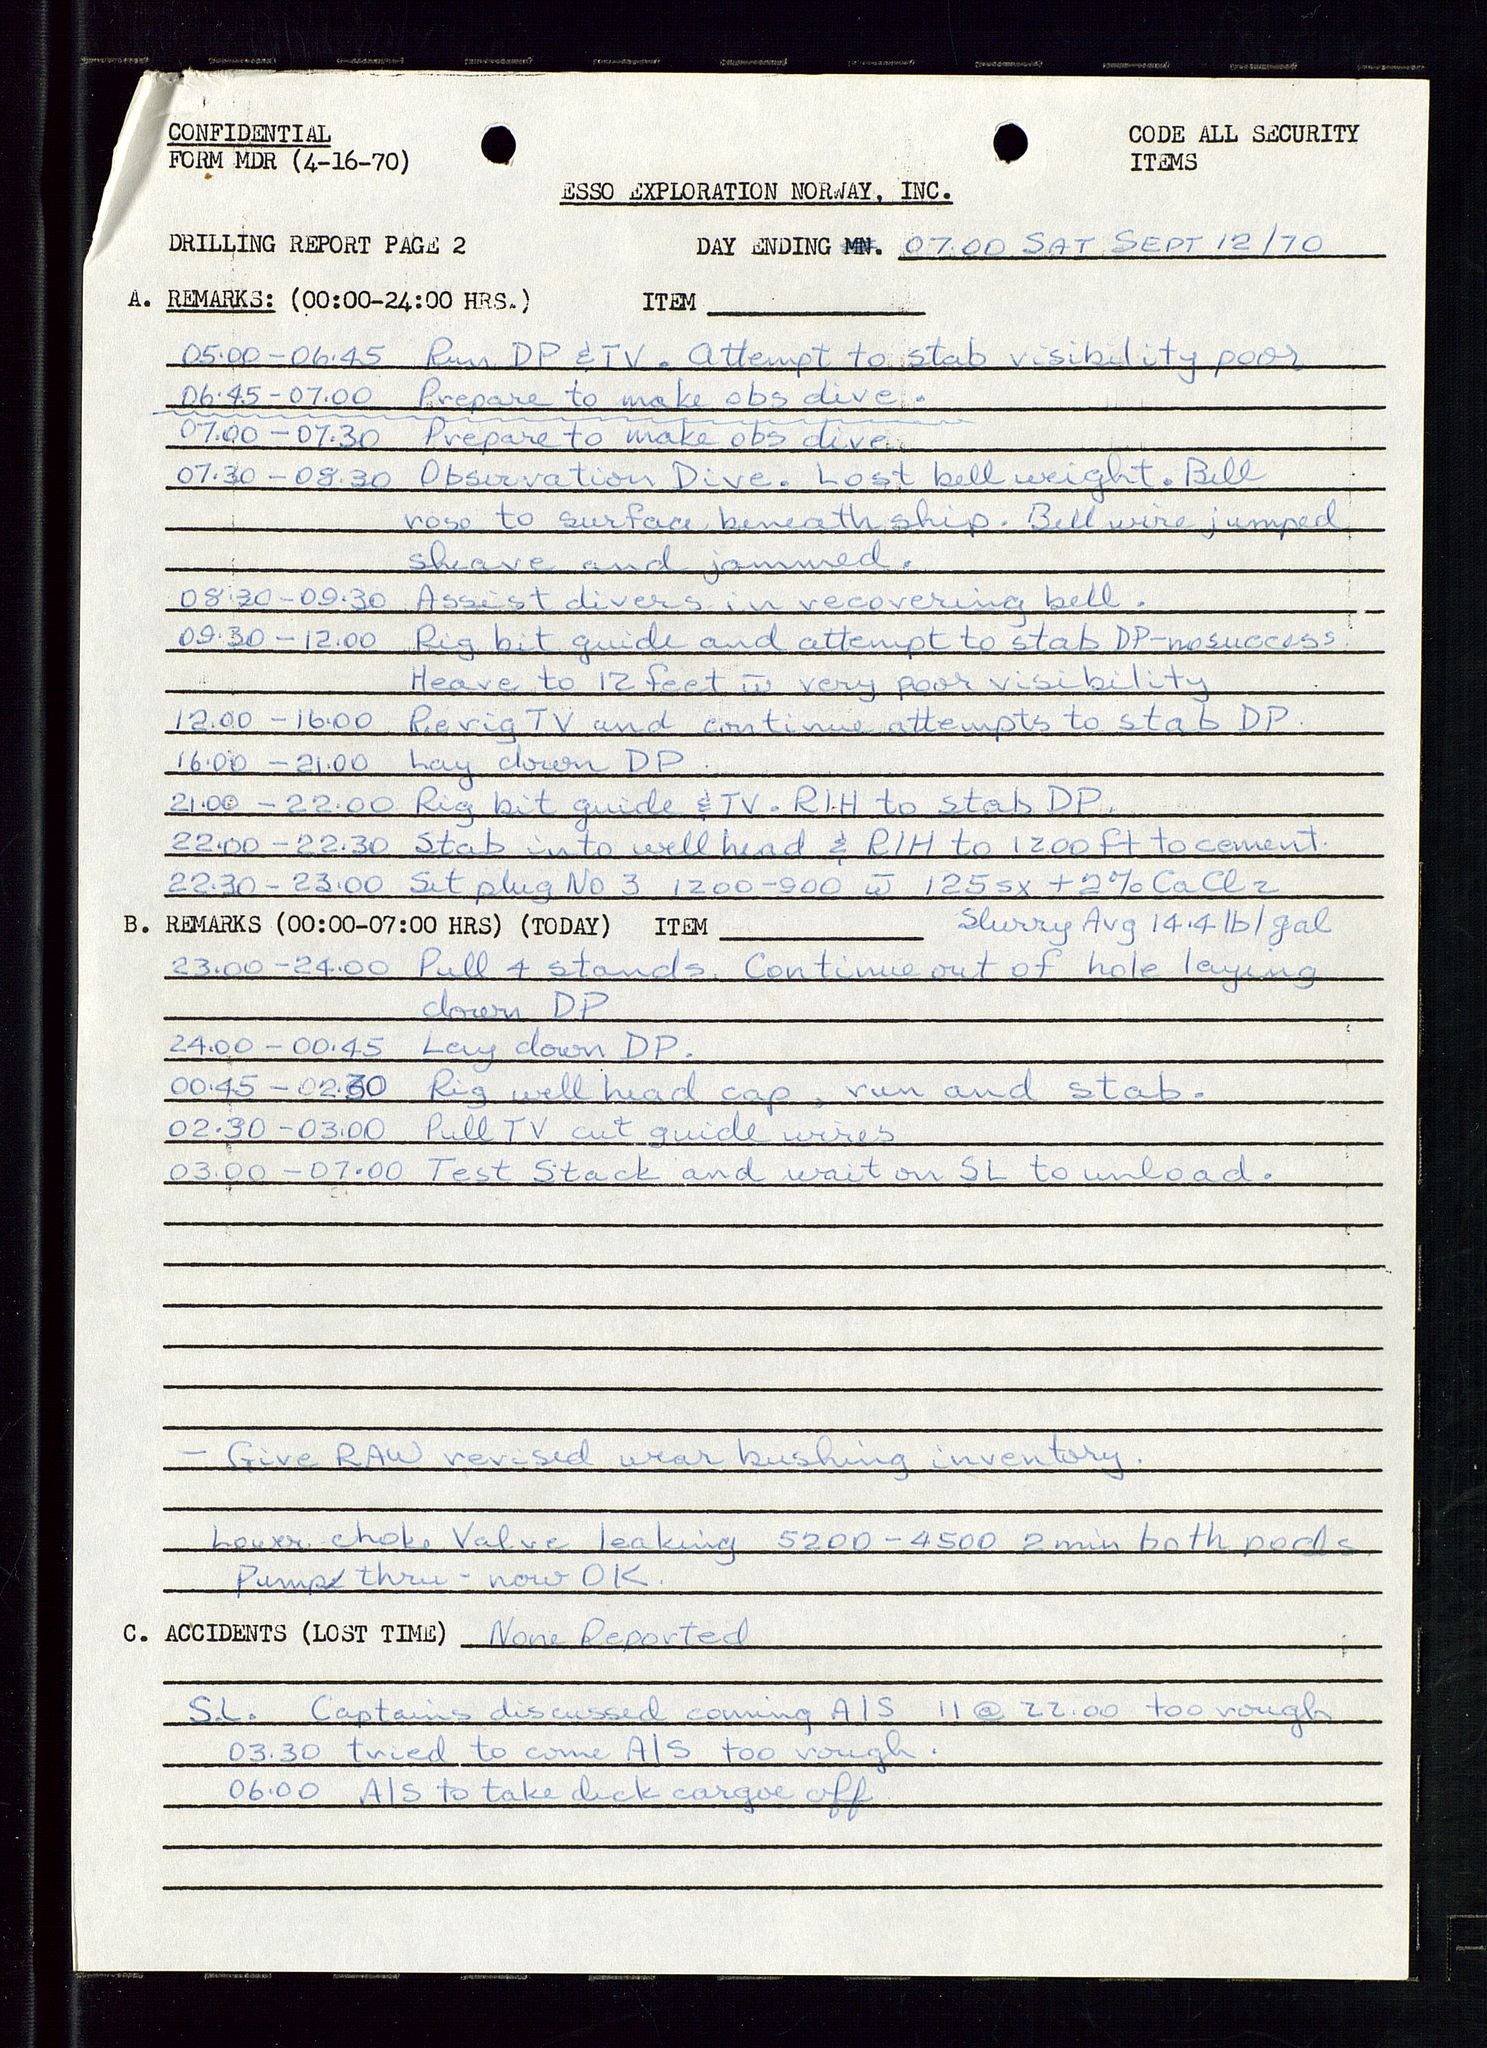 CONFIDENTIAL
FORM MDR (4-16-70)
CODE ALL SECURITY
ITEMS
ESSO EXPLORATION NORWAY, INC.
DRILLING REPORT PAGE 2 DAY ENDING MN. 07.00 SAT SEPT 12/70
A. REMARKS: (00:00-24:00 HRS.) ITEM
05.00-06.45 Run DP & TV. Attempt to stab visibility poor
06.45-07.00 Prepare to make obs dive.
07.00-07.30 Prepare to make obs dive
07.30-08.30 Observation Dive. Lost bell weight. Bell
rose to surface beneath ship. Bell wire jumped
sheave and jammed.
08.30-09.30 Assist divers in recovering bell.
09.30-12.00 Rig bit guide and attempt to stab DP-no success.
Heave to 12 feet w̄ very poor visibility
12.00-16.00 Rerig TV and continue attempts to stab DP.
16.00-21.00 Lay down DP.
21.00-22.00 Rig bit guide & TV. RIH to stab DP.
22.00-22.30 Stab into well head & RIH to 1200 ft to cement.
22.30-23.00 Set plug No 3 1200-900 w̄ 125 sx + 2% CaCl2
B. REMARKS (00:00-07:00 HRS) (TODAY) ITEM Slurry Avg 14.4 lb/gal
23.00-24.00 Pull 4 stands. Continue out of hole laying
down DP
24.00-00.45 Lay down DP.
00.45-02.30 Rig well head cap, run and stab.
02.30-03.00 Pull TV cut guide wires
03.00-07.00 Test Stack and wait on SL to unload.
- Give RAW revised wear bushing inventory.
Lower choke Valve leaking 5200-4500 2 min both pods.
Pump thru - now OK.
C. ACCIDENTS (LOST TIME) None Reported
S.L. Captains discussed coming A/S 11 @ 22.00 too rough
03.30 tried to come A/S too rough.
06.00 A/S to take deck cargoe off